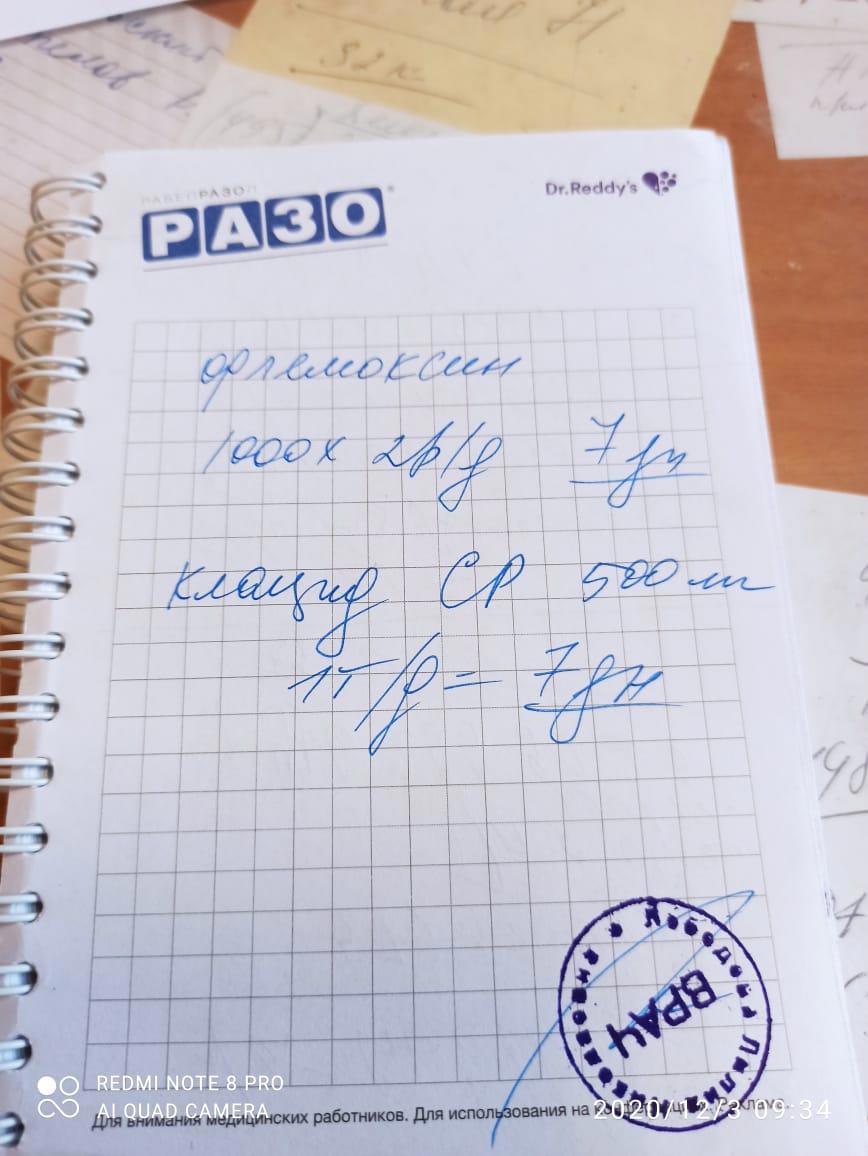 32 к
РАБЕПРАЗОЛ
РАЗО®
Dr.Reddy's
флемоксин
1000 х 2р/д 7 дн
Клацид СР 500 мг
1т/д = 7 дн
Лебедева Лилия
ВРАЧ
REDMI NOTE 8 PRO
AI QUAD CAMERA
2020/12/3 09:34
Для внимания медицинских работников. Для использования на Реклама